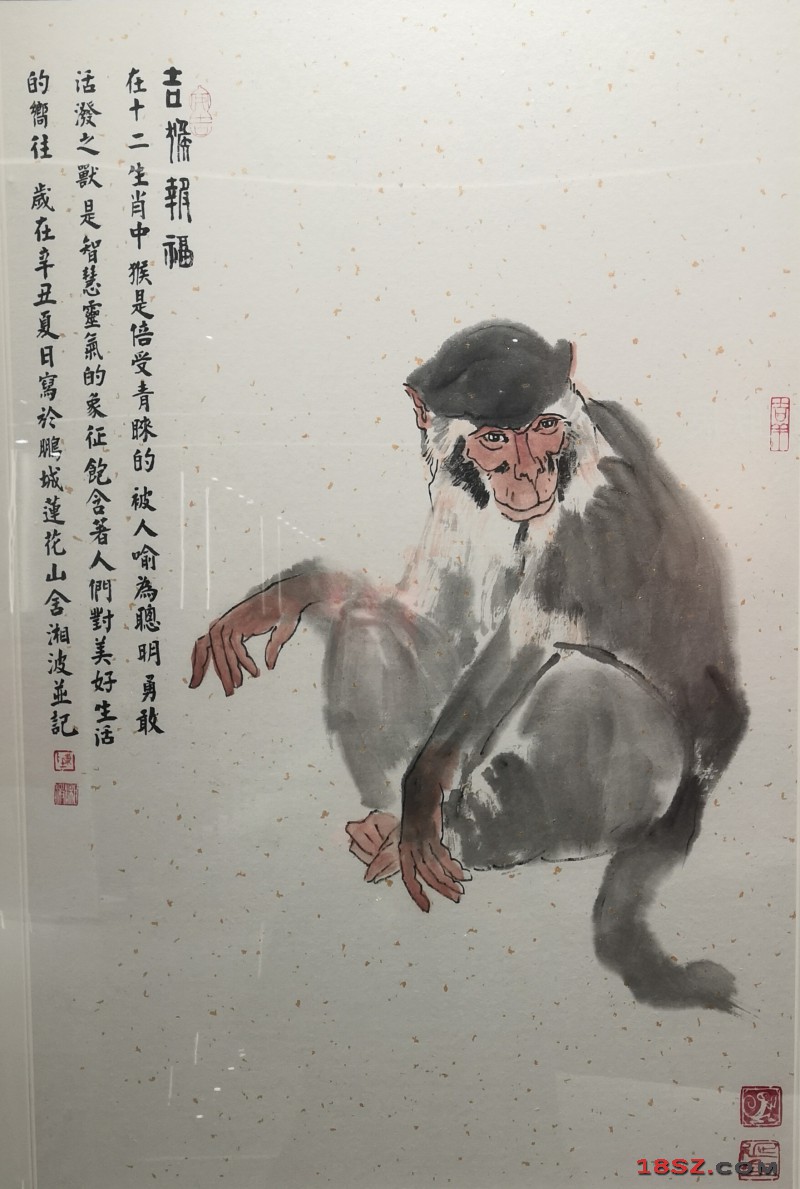 吉猴報福
在十二生肖中猴是倍受青睞的被人喻為聰明勇敢
活潑之獸是智慧靈氣的象征飽含著人們對美好生活
的嚮往 歲在辛丑夏日寫於鵬城蓮花山舍湘波並記
18SZ.COM